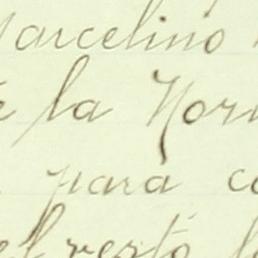 Marcelino
la Nor
para co
el resto